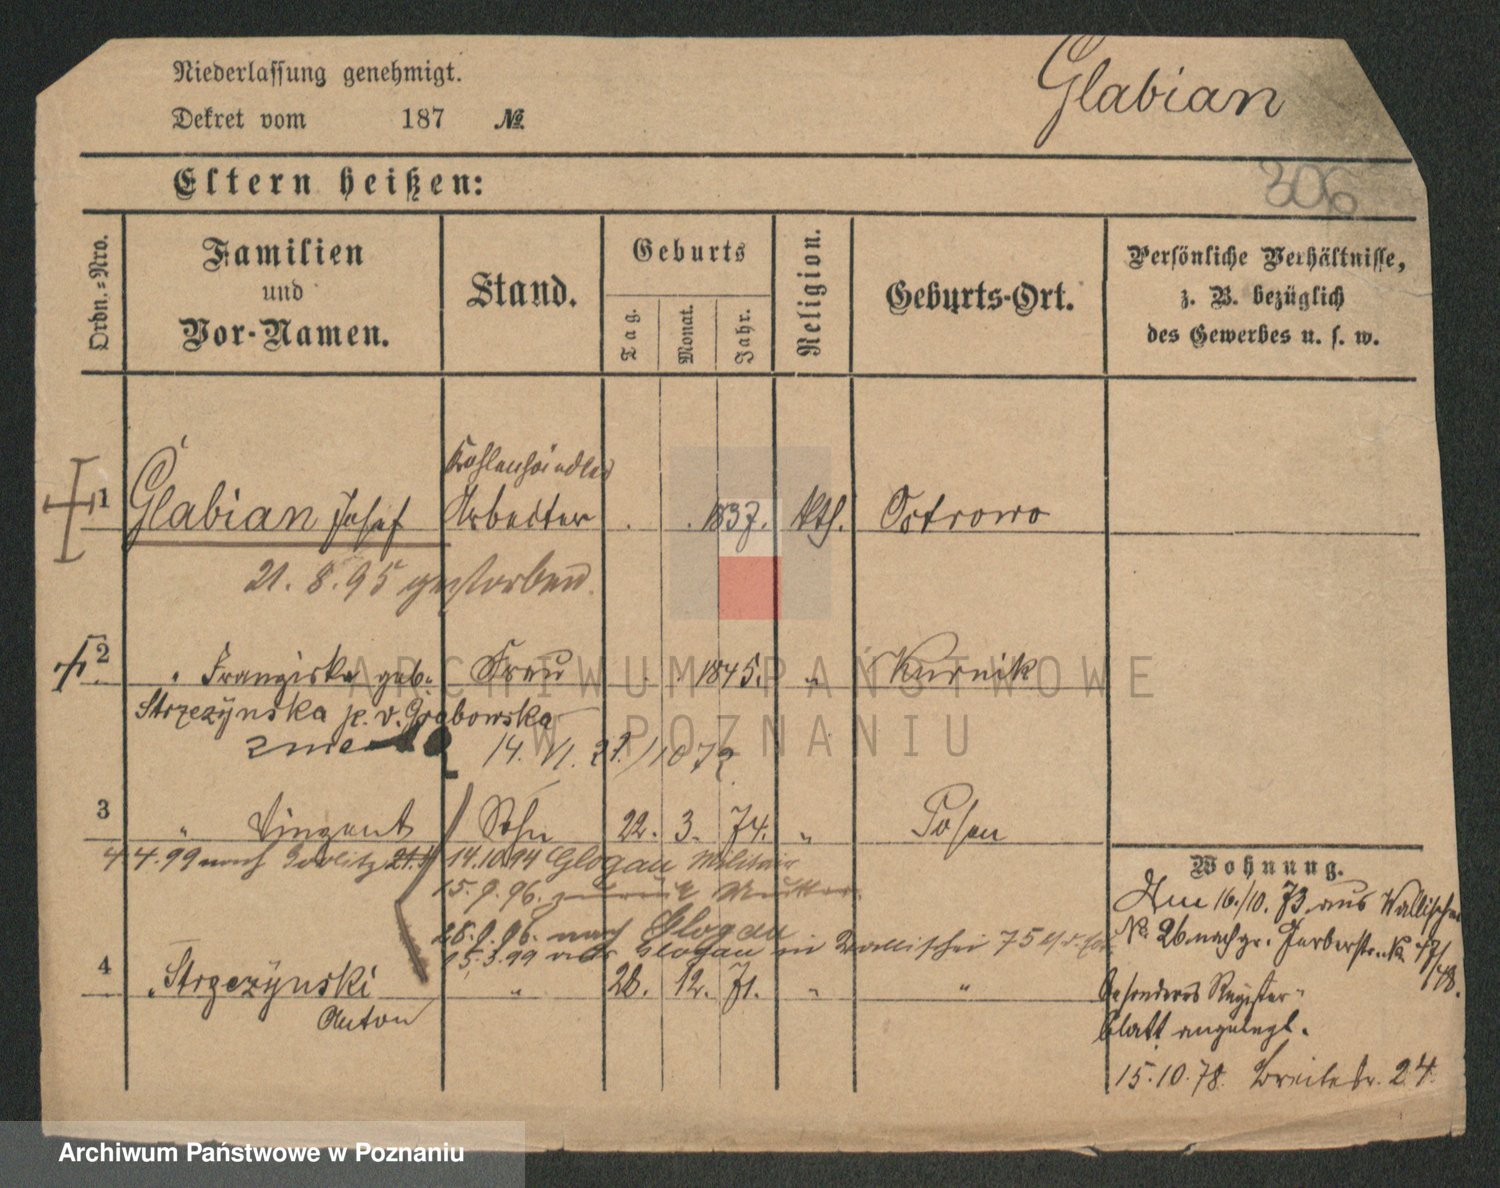 Niederlassung genehmigt.
Glabian
Dekret vom 187 №
306
Eltern heißen:
Ordn.=Nro.
Familien
und
Vor-Namen.
Stand.
Geburts
Tag.
Monat.
Jahr.
Religion.
Geburts-Ort.
Persönliche Verhältnisse,
z. B. bezüglich
des Gewerbes u. s. w.
Kohlenhändler
1 Glabian Josef Arbeiter . . 1837. kth. Ostrowo
21. 8. 95 gestorben.
2 " Franziska geb. Frau . . 1845. " Kurnik
Strzezÿnska p. v. Grabowska
14. VI. 22/1072
3 " Vinzent Sohn 22. 3. 74. " Posen
4.4.99 nach Görlitz 14.10.94 Glogau Militair
15.9.96. zurück Mutter
28.9.96. nach Glogau
15.3.99 von Glogau in Wallischei 75
4 " Strzezÿnski " 28. 12. 71. " "
Anton
Wohnung.
Am 16./10. 73 aus Wallischei
No. 26 nach gr. Gerberstr. No. 47/
48.
Besonderes Register-
blatt angelegt.
15.10.78. Breitestr. 24.
ARCHIWUM PAŃSTWOWE
W POZNANIU
Archiwum Państwowe w Poznaniu